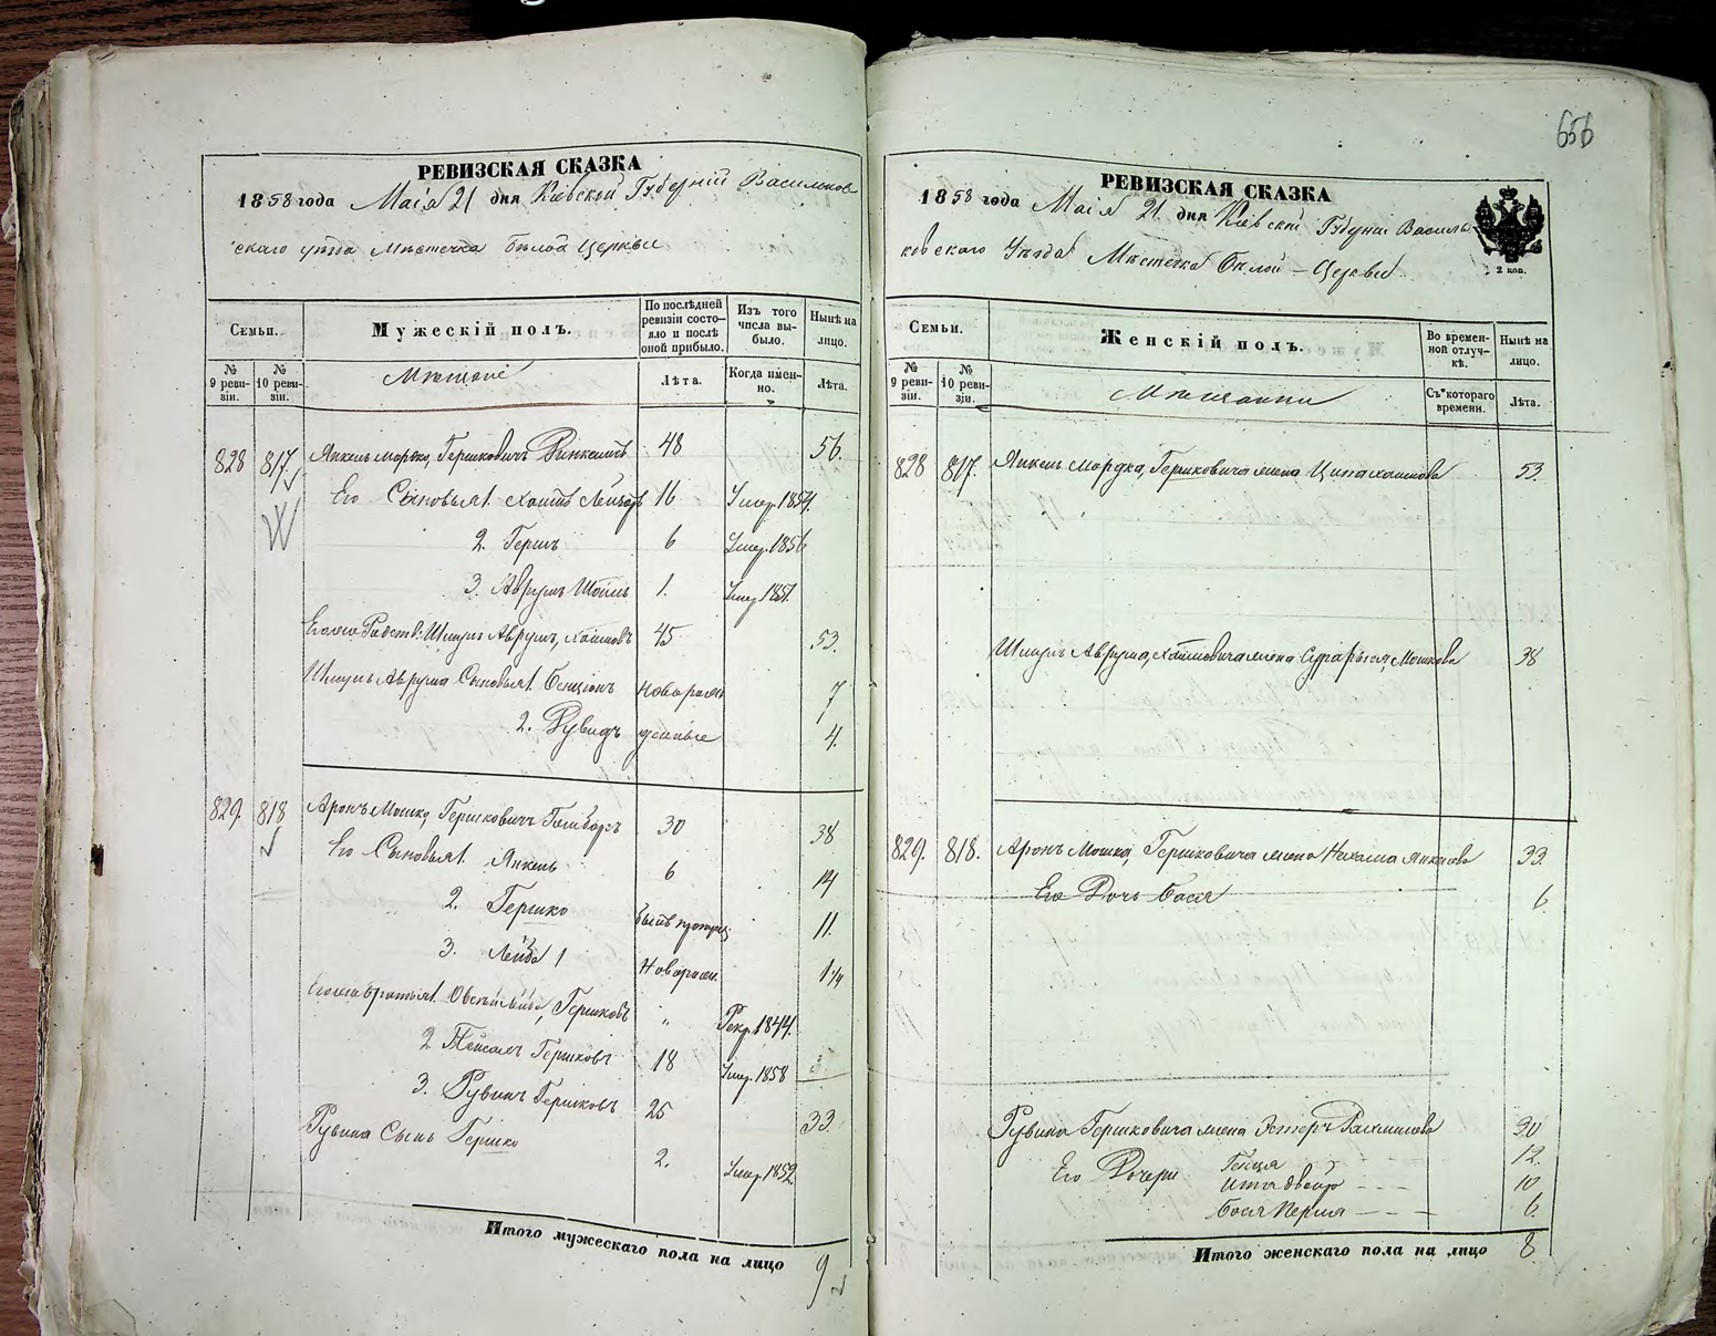 656
РЕВИЗСКАЯ СКАЗКА
1858 года Маія 21 дня Кіевской Губерніи Васильков
скаго уѣзда Мѣстечка Бѣлой Церкви
Семьи.
Мужескій полъ.
По послѣдней ревизіи состояло и послѣ оной прибыло.
Изъ того числа выбыло.
Нынѣ на лицо.
№ 9 ревизіи.
№ 10 ревизіи.
Мѣщане
Лѣта.
Когда именно.
Лѣта.
828 817. Янкель Мордко, Гершковичъ 48 56.
Его Сыновья 1. Хаимъ Лейзоръ 16 Умер. 1854.
2. Герш 6 Умер. 1856
3. Аврумъ 1. Умер 1851.
Шмуль Аврумъ, Хаимовъ 45 53.
Шмуль Аврума Сыновья 1. Бенціонъ новорож 7
2. Дувидъ денные 4.
829. 818 Аронъ Мошко, Гершковичъ 30 38
Его Сыновья 1. Янкель 6 14
2. Гершко бывъ пропущ 11.
3. Лейба 1 Новорожд. 1 1/4
Его же братья 1. Гершковъ " Рекр. 1844.
2. Пейсахъ Гершковъ 18 Умер. 1858
3. Рувинъ Гершковъ 25 33.
Рувина Сынъ Гершко 2. Умер. 1852.
Итого мужескаго пола на лицо 9
РЕВИЗСКАЯ СКАЗКА
1858 года Маія 21. дня Кіевской Губерніи Василь
ковскаго Уѣзда Мѣстечка Бѣлой-Церкви
2 коп.
Семьи.
Женскій полъ.
Во временной отлучкѣ.
Нынѣ на лицо.
№ 9 ревизіи.
№ 10 ревизіи.
Мѣщанки
Съ котораго времени.
Лѣта.
828 817. Янкель Мордка, Гершковича жена Ципа Хаимова 53.
Шмуль Аврума, Хаимовича жена Сура Рыся, Мошкова 38
829. 818. Аронъ Мошка, Гершковича жена Нехама Янкелева 33.
Его Дочь Бася 6
Рувина Гершковича жена Эстеръ Рахмилева 30
Его Дочери Генця 12.
Ита Двейра 10
Бася Перля 6.
Итого женскаго пола на лицо 8